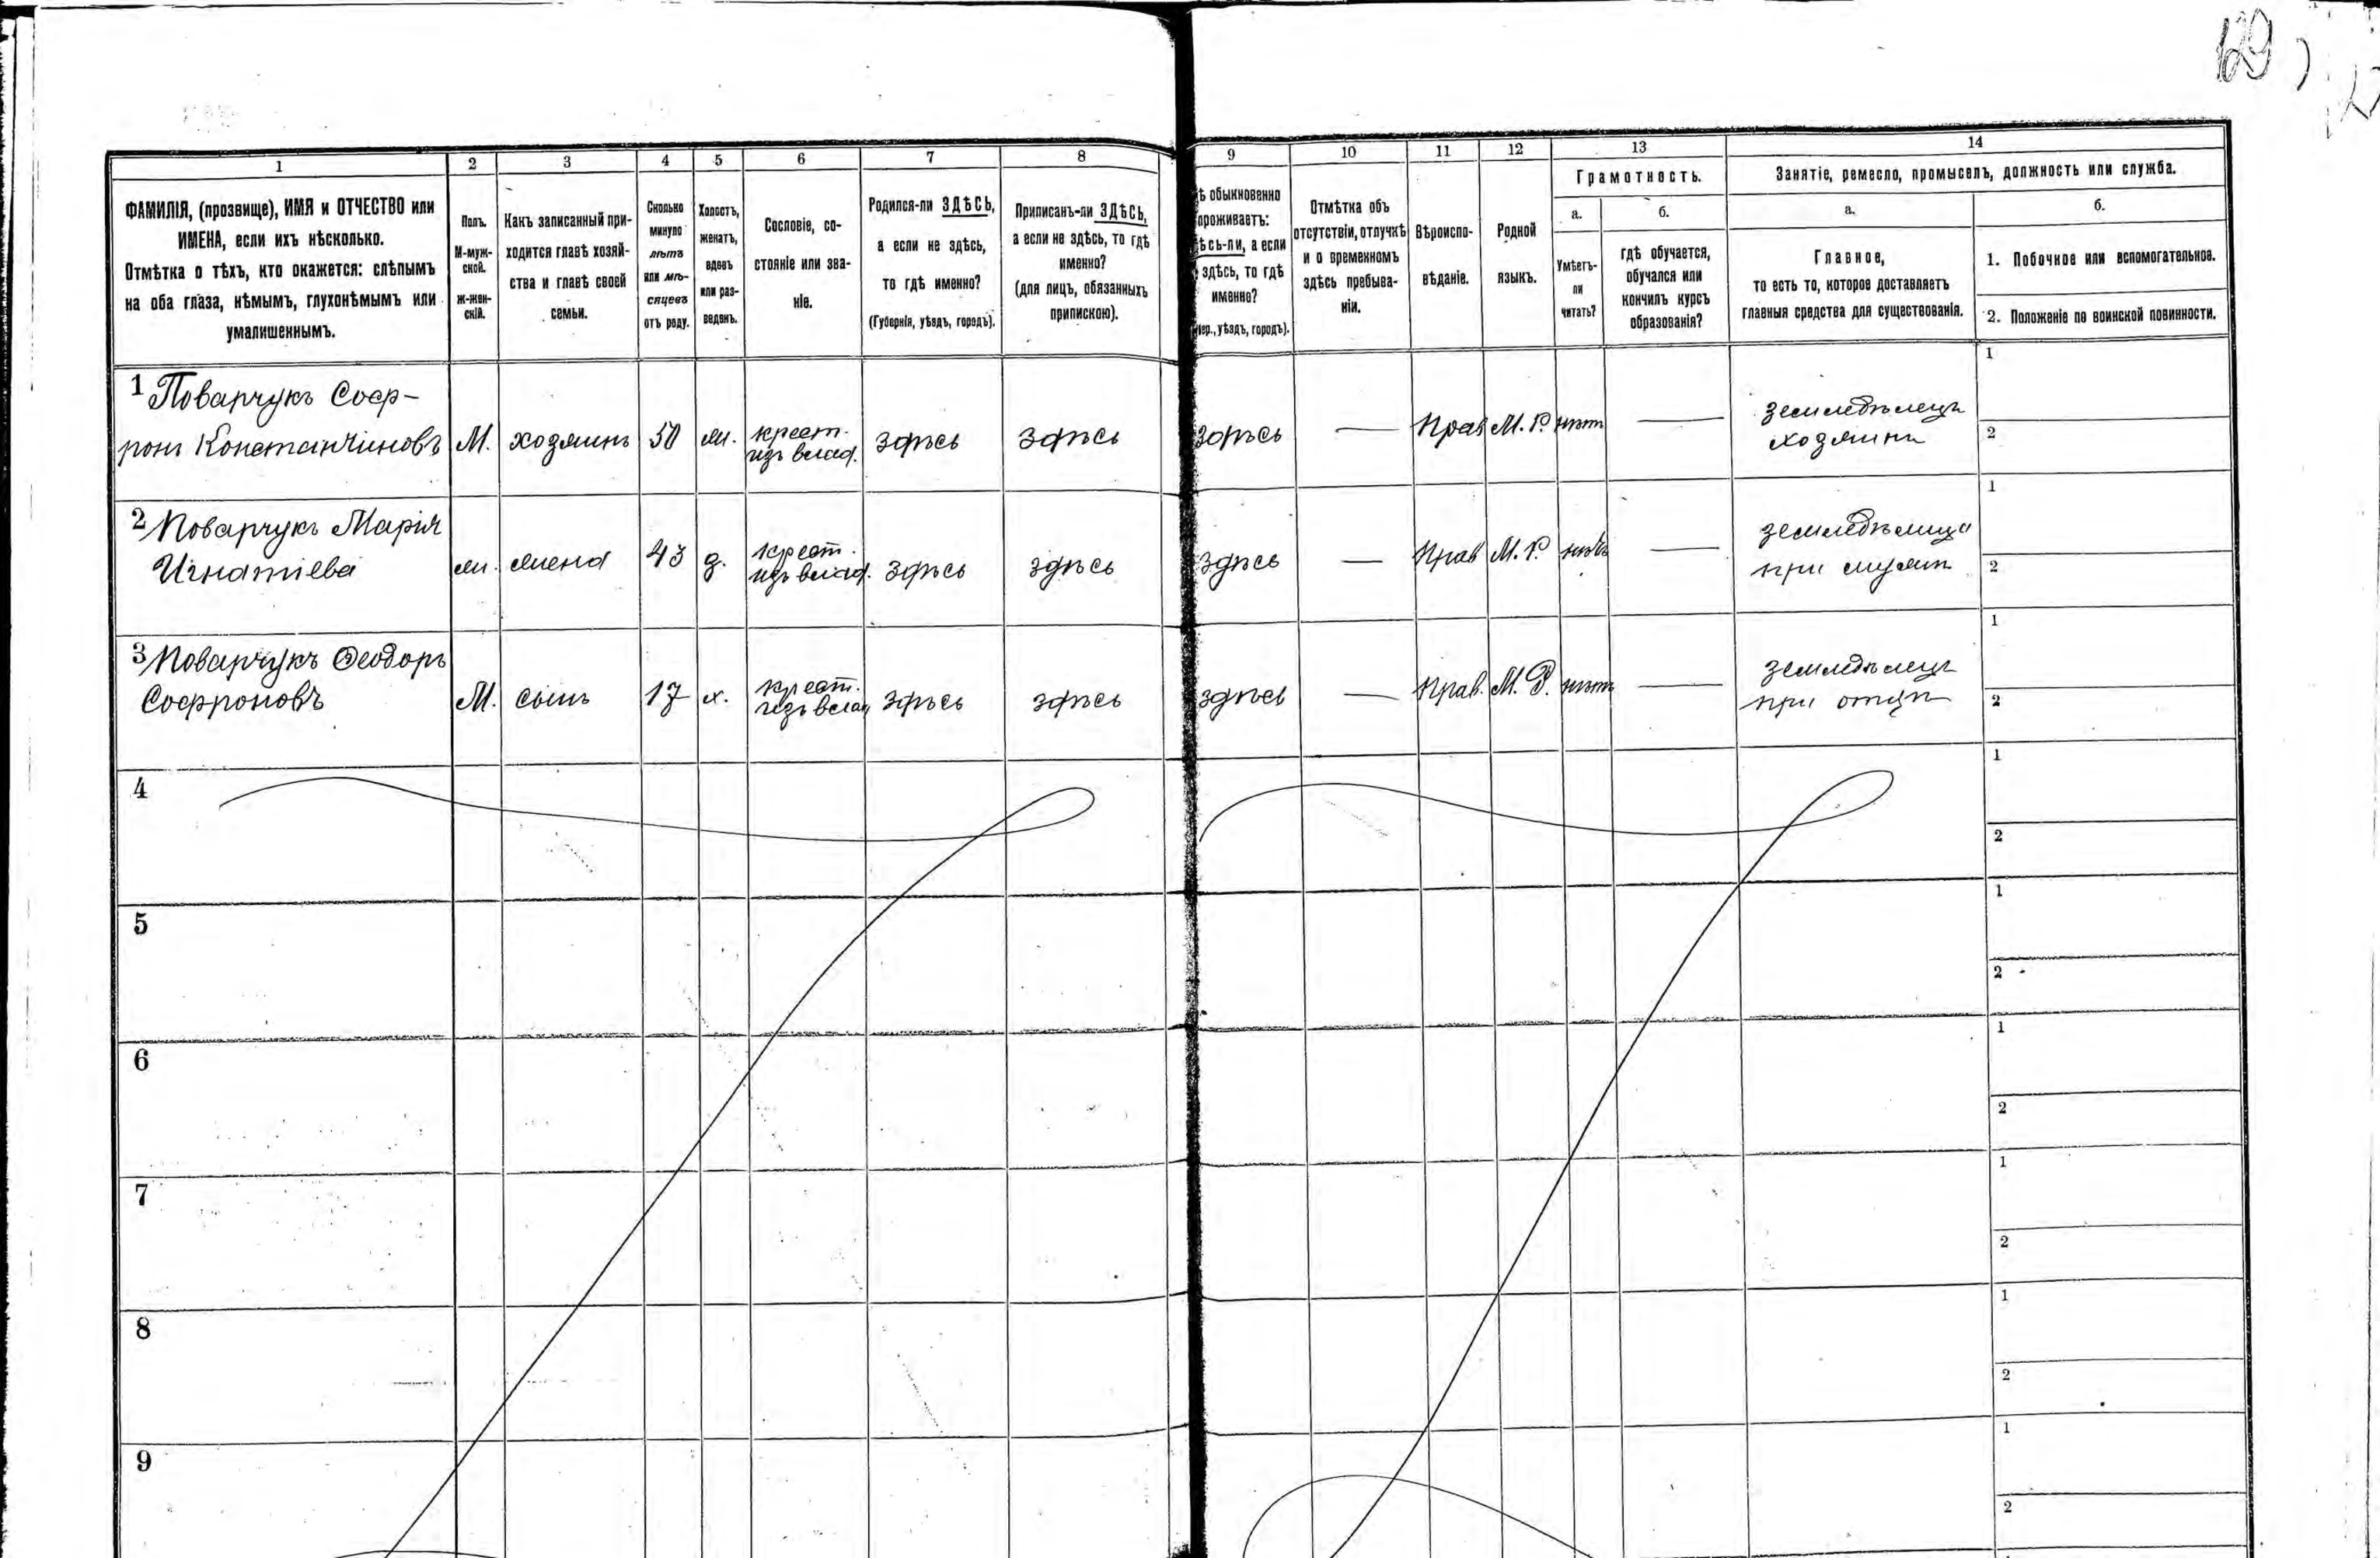 129
1
2
3
4
5
6
7
8
9
10
11
12
13
14
ФАМИЛІЯ, (прозвище), ИМЯ и ОТЧЕСТВО или
ИМЕНА, если ихъ нѣсколько.
Отмѣтка о тѣхъ, кто окажется: слѣпымъ
на оба глаза, нѣмымъ, глухонѣмымъ или
умалишеннымъ.
Полъ.
М-муж-
ской.
Ж-жен-
скій.
Какъ записанный при-
ходится главѣ хозяй-
ства и главѣ своей
семьи.
Сколько
минуло
лѣтъ
или мѣ-
сяцевъ
отъ роду.
Холостъ,
женатъ,
вдовъ
или раз-
веденъ.
Сословіе, со-
стояніе или зва-
ніе.
Родился-ли ЗДѢСЬ,
а если не здѣсь,
то гдѣ именно?
(Губернія, уѣздъ, городъ).
Приписанъ-ли ЗДѢСЬ,
а если не здѣсь, то гдѣ
именно?
(для лицъ, обязанныхъ
припискою).
ѣ обыкновенно
проживаетъ:
ѣсь-ли, а если
здѣсь, то гдѣ
именно?
бер., уѣздъ, городъ).
Отмѣтка объ
отсутствіи, отлучкѣ
и о временномъ
здѣсь пребыва-
ніи.
Вѣроиспо-
вѣданіе.
Родной
языкъ.
Грамотность.
а.
б.
Умѣетъ-
ли
читать?
гдѣ обучается,
обучался или
кончилъ курсъ
образованія?
Занятіе, ремесло, промыселъ, должность или служба.
а.
б.
Главное,
то есть то, которое доставляетъ
главныя средства для существованія.
1. Побочное или вспомогательное.
2. Положеніе по воинской повинности.
1 Поварчукъ Соф-
ронъ Константиновъ
М. хозяинъ 50 ж. крест.
изъ влад. здѣсь здѣсь здѣсь — Прав М. Р. нѣт — земледѣлецъ
хозяинъ
1
2
2 Поварчукъ Марія
Игнатіева
ж. жена 43 з. крест.
изъ влад. здѣсь здѣсь здѣсь — Прав М. Р. нѣтъ — земледѣлица
при мужѣ
1
2
3 Поварчукъ Ѳеодоръ
Софроновъ
М. сынъ 17 х. крест.
изъ влад здѣсь здѣсь здѣсь — Прав. М. Р. нѣт — земледѣлецъ
при отцѣ
1
2
4
1
2
5
1
2
6
1
2
7
1
2
8
1
2
9
1
2